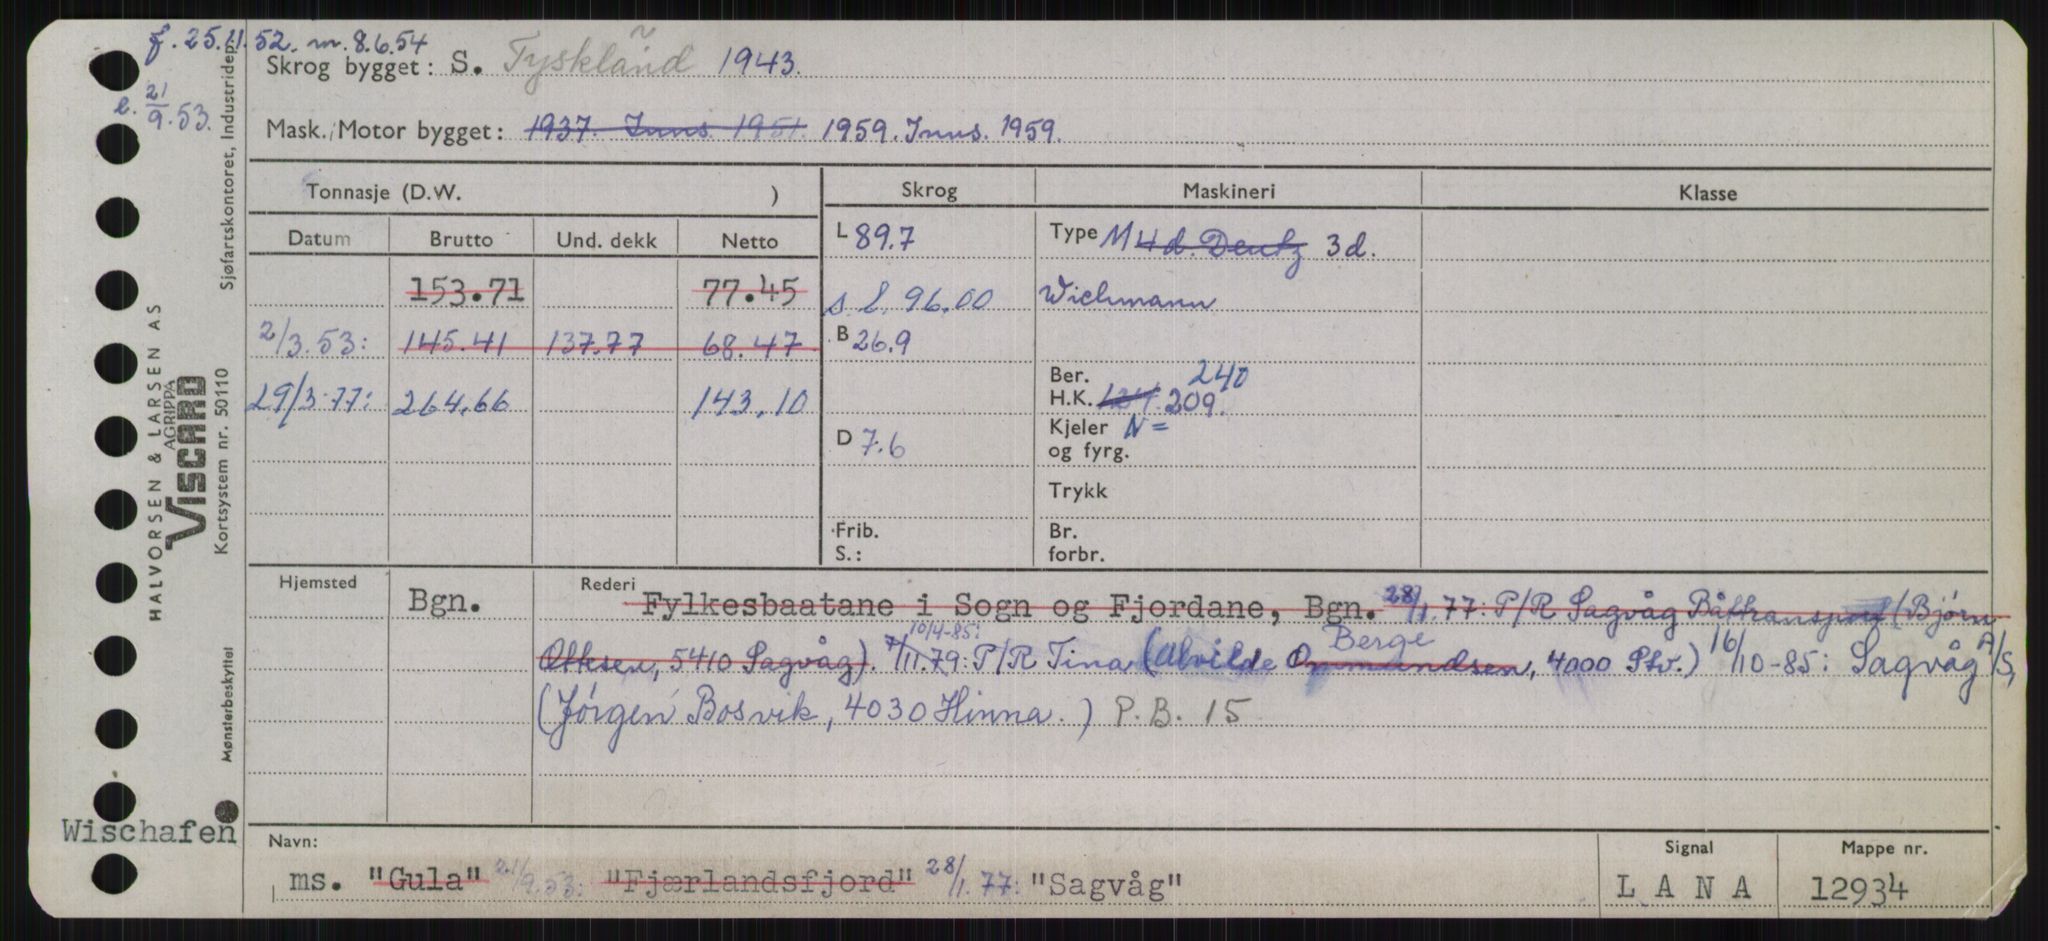 f. 25.11.52. m. 8.6.54
Skrog bygget: S. Tyskland 1943.
e. 21/9.53.
Mask./Motor bygget: 1937. Inns. 1951. 1959. Inns. 1959.
Tonnasje (D.W. ) Skrog Maskineri Klasse
Datum Brutto Und. dekk Netto L 89.7 Type M 4 d. Deutz 3 d.
153.71 77.45 s.l. 96.00 Wichmann
2/3.53: 145.41 137.77 68.47 B 26.9
Ber. 240
29/3.77: 264.66 143.10 H.K. 124. 209.
D 7.6 Kjeler N =
og fyrg.
Trykk
Frib. Br.
S.: forbr.
Hjemsted Bgn. Rederi Fylkesbaatane i Sogn og Fjordane, Bgn. 28/1.77: P/R Sagvåg Båttransport (Bjørn
10/4-85: Berge
Ottesen, 5410 Sagvåg). 7/11.79: P/R Tina (Alvilde Omundsen, 4000 Stv.) 16/10-85: Sagvåg A/S,
(Jørgen Bosvik, 4030 Hinna.) P.B. 15
Wischafen
Navn: Signal Mappe nr.
ms. "Gula" 21/9.53: "Fjærlandsfjord" 28/1.77: "Sagvåg" L A N A 12934
Sjøfartskontoret, Industridep.
HALVORSEN & LARSEN AS
AGRIPPA
VISCARD
Kortsystem nr. 50110
Mønsterbeskyttet